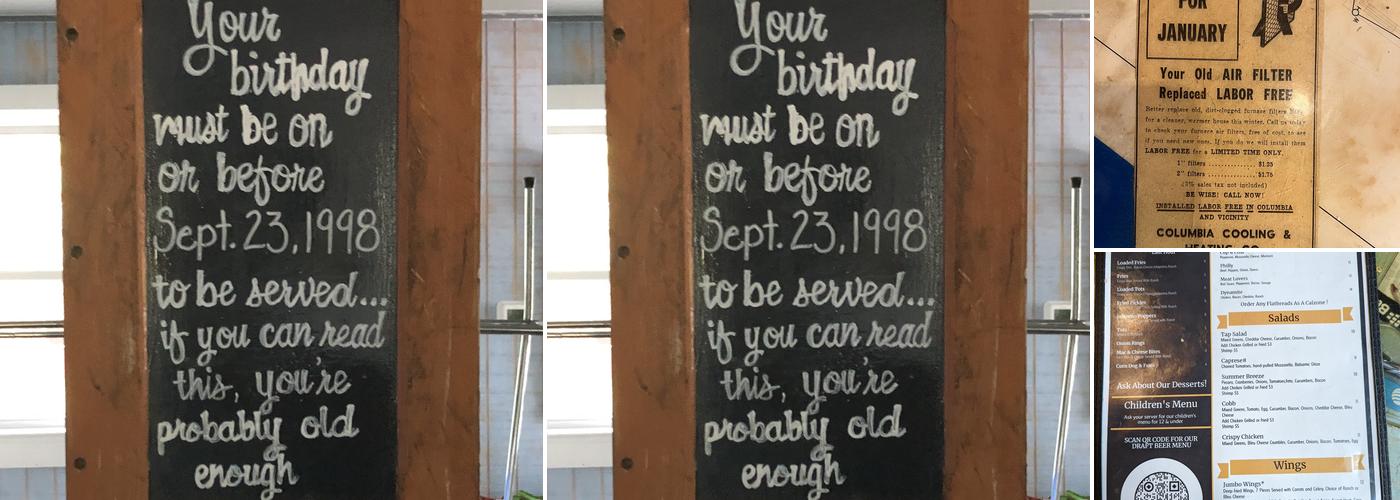 Your
birthday
must be on
or before
Sept. 23, 1998
to be served...
if you can read
this, you're
probably old
enough
Your
birthday
must be on
or before
Sept. 23, 1998
to be served...
if you can read
this, you're
probably old
enough
FOR
JANUARY
Your Old AIR FILTER
Replaced LABOR FREE
Better replace old, dirt-clogged furnace filters
for a cleaner, warmer house this winter. Call us today
to check your furnace air filters, free of cost, to see
if you need new ones. If you do we will install them
LABOR FREE for a LIMITED TIME ONLY.
1" filters .............. $1.25
2" filters .............. $1.75
(2% sales tax not included)
BE WISE! CALL NOW!
INSTALLED LABOR FREE IN COLUMBIA
AND VICINITY
COLUMBIA COOLING &
HEATING CO.
Loaded Fries
Fries
Loaded Tots
Fried Pickles
Jalapeño Poppers
Tots
Onion Rings
Mac & Cheese Bites
Corn Dog & Fries
Ask About Our Desserts!
Children's Menu
Ask your server for our children's
menu for 12 & under
SCAN QR CODE FOR OUR
DRAFT BEER MENU
Philly
Meat Lovers
Dynamite
Chicken, Bacon, Cheddar, Ranch
Order Any Flatbreads As A Calzone!
Salads
Tap Salad
Mixed Greens, Cheddar Cheese, Cucumber, Onions, Bacon
Add Chicken Grilled or Fried $3
Shrimp $5
Caprese
Summer Breeze
Add Chicken Grilled or Fried $3
Shrimp $5
Cobb
Mixed Greens, Tomato, Egg, Cucumber, Bacon, Onions, Cheddar Cheese, Bleu
Cheese
Add Chicken Grilled or Fried $3
Shrimp $5
Crispy Chicken
Mixed Greens, Bleu Cheese Crumbles, Cucumber, Onions, Bacon, Tomatoes, Egg
Wings
Jumbo Wings*